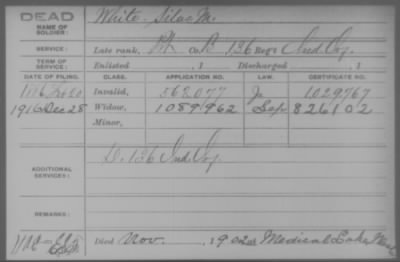 DEAD
NAME OF SOLDIER:
White, Silas M.
SERVICE:
Late rank, Pt Co. B 136 Reg't Ind. Inf.
TERM OF SERVICE:
Enlisted , 1 Discharged , 1
DATE OF FILING. CLASS. APPLICATION NO. LAW. CERTIFICATE NO.
Invalid, 562077 1029767
1916 Dec 28 Widow, 1089962 Sep. 826102
Minor,
ADDITIONAL SERVICES:
D. 136 Ind. Inf.
REMARKS:
Died Nov. , 1902 at Medical Lake, Wash